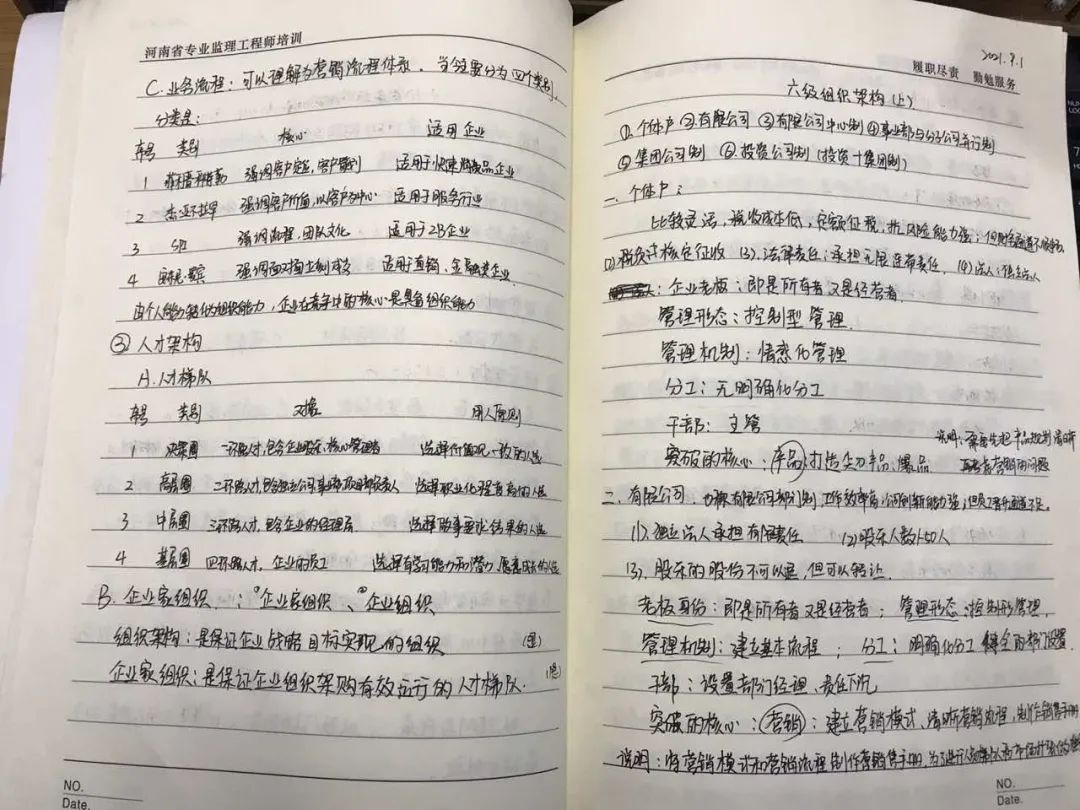 河南省专业监理工程师培训
C. 业务流程：可以理解为营销流程体系，当今主要分为四个类别，
分类是：
序号 类别 核心 适用企业
1 菲利普科特勒 强调客户定位，客户吸引 适用于快速消费品企业
2 杰亚不拉罕 强调客户价值，以客户为中心 适用于服务行业
3 SPIN 强调流程，团队文化 适用于2B企业
4 强调面对面主动成交 适用于直销、金融类企业
由个人能力转化为组织能力，企业在竞争中的核心是具备组织能力
③ 人才架构
A. 人才梯队
序号 类别 对象 用人原则
1 决策圈 一环路人才，包含企业股东、核心管理者 选择价值观一致的人选
2 高层圈 二环路人才，包含 公司事业部项目部负责人 选择职业化程度高的人选
3 中层圈 三环路人才，包含企业的经理层 选择做事要求结果的人选
4 基层圈 四环路人才，企业的员工 选择有学习能力和潜力 愿意成长的人选
B. 企业家组织：①企业家组织、②企业组织
组织架构：是保证企业战略目标实现的组织
企业家组织：是保证企业组织架构有效运行的人才梯队.
NO.
Date.
2021.9.1
履职尽责 勤勉服务
六级组织架构（上）
①. 个体户 ②有限公司 ③有限公司中心制 ④事业部与分子公司并行制
⑤集团公司制 ⑥. 投资公司制（投资+集团制）
一. 个体户：
比较灵活，税收成本低，定额征税，抗风险能力强；但融资通道不
(2) 税负以核定征收 (3). 法律责任：承担无限连带责任. (4) 法人：
企业老板：即是所有者又是经营者.
管理形态：控制型管理.
管理机制：情感化管理
分工：无明确化分工
干部：主管
突破的核心：产品：打造尖刀产品、爆品
说明：
二. 有限公司. 也称有限公司部门制，工作效率高，公司创新能力强；但员工晋升通道不足.
(1). 独立法人承担有限责任 (2) 股东人数1-50人
(3). 股东的股份不可以退，但可以转让.
老板身份：即是所有者又是经营者； 管理形态：控制形管理.
管理机制：建立基本流程； 分工：明确化分工 健全的部门设置.
干部：设置部门经理、责任下沉
突破的核心：营销：建立营销模式、清晰营销流程，制作销售手册
说明：将营销模式和营销流程制作营销售手册，为了
NO.
Date.